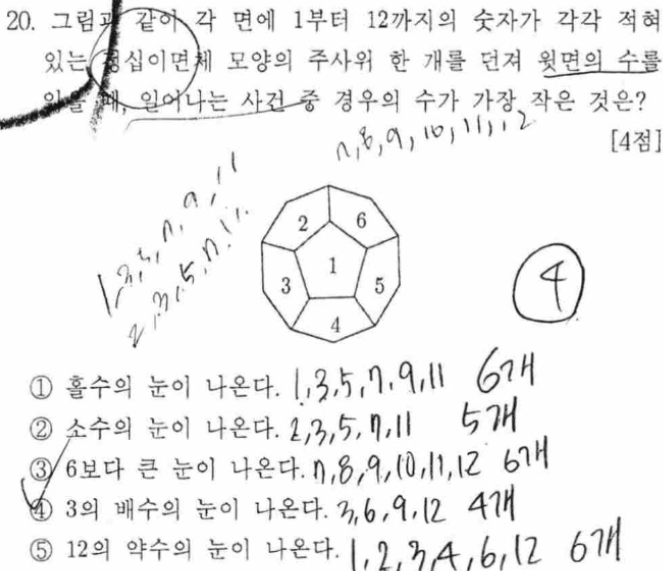 20. 그림과 같이 각 면에 1부터 12까지의 숫자가 각각 적혀
있는 정십이면체 모양의 주사위 한 개를 던져 윗면의 수를
읽을 때, 일어나는 사건 중 경우의 수가 가장 작은 것은?
[4점]
7, 8, 9, 10, 11, 12
1, 3, 5, 7, 9, 11
2, 3, 5, 7, 11
2 6
1
3 5
4
4
① 홀수의 눈이 나온다. 1, 3, 5, 7, 9, 11 6개
② 소수의 눈이 나온다. 2, 3, 5, 7, 11 5개
③ 6보다 큰 눈이 나온다. 7, 8, 9, 10, 11, 12 6개
④ 3의 배수의 눈이 나온다. 3, 6, 9, 12 4개
⑤ 12의 약수의 눈이 나온다. 1, 2, 3, 4, 6, 12 6개